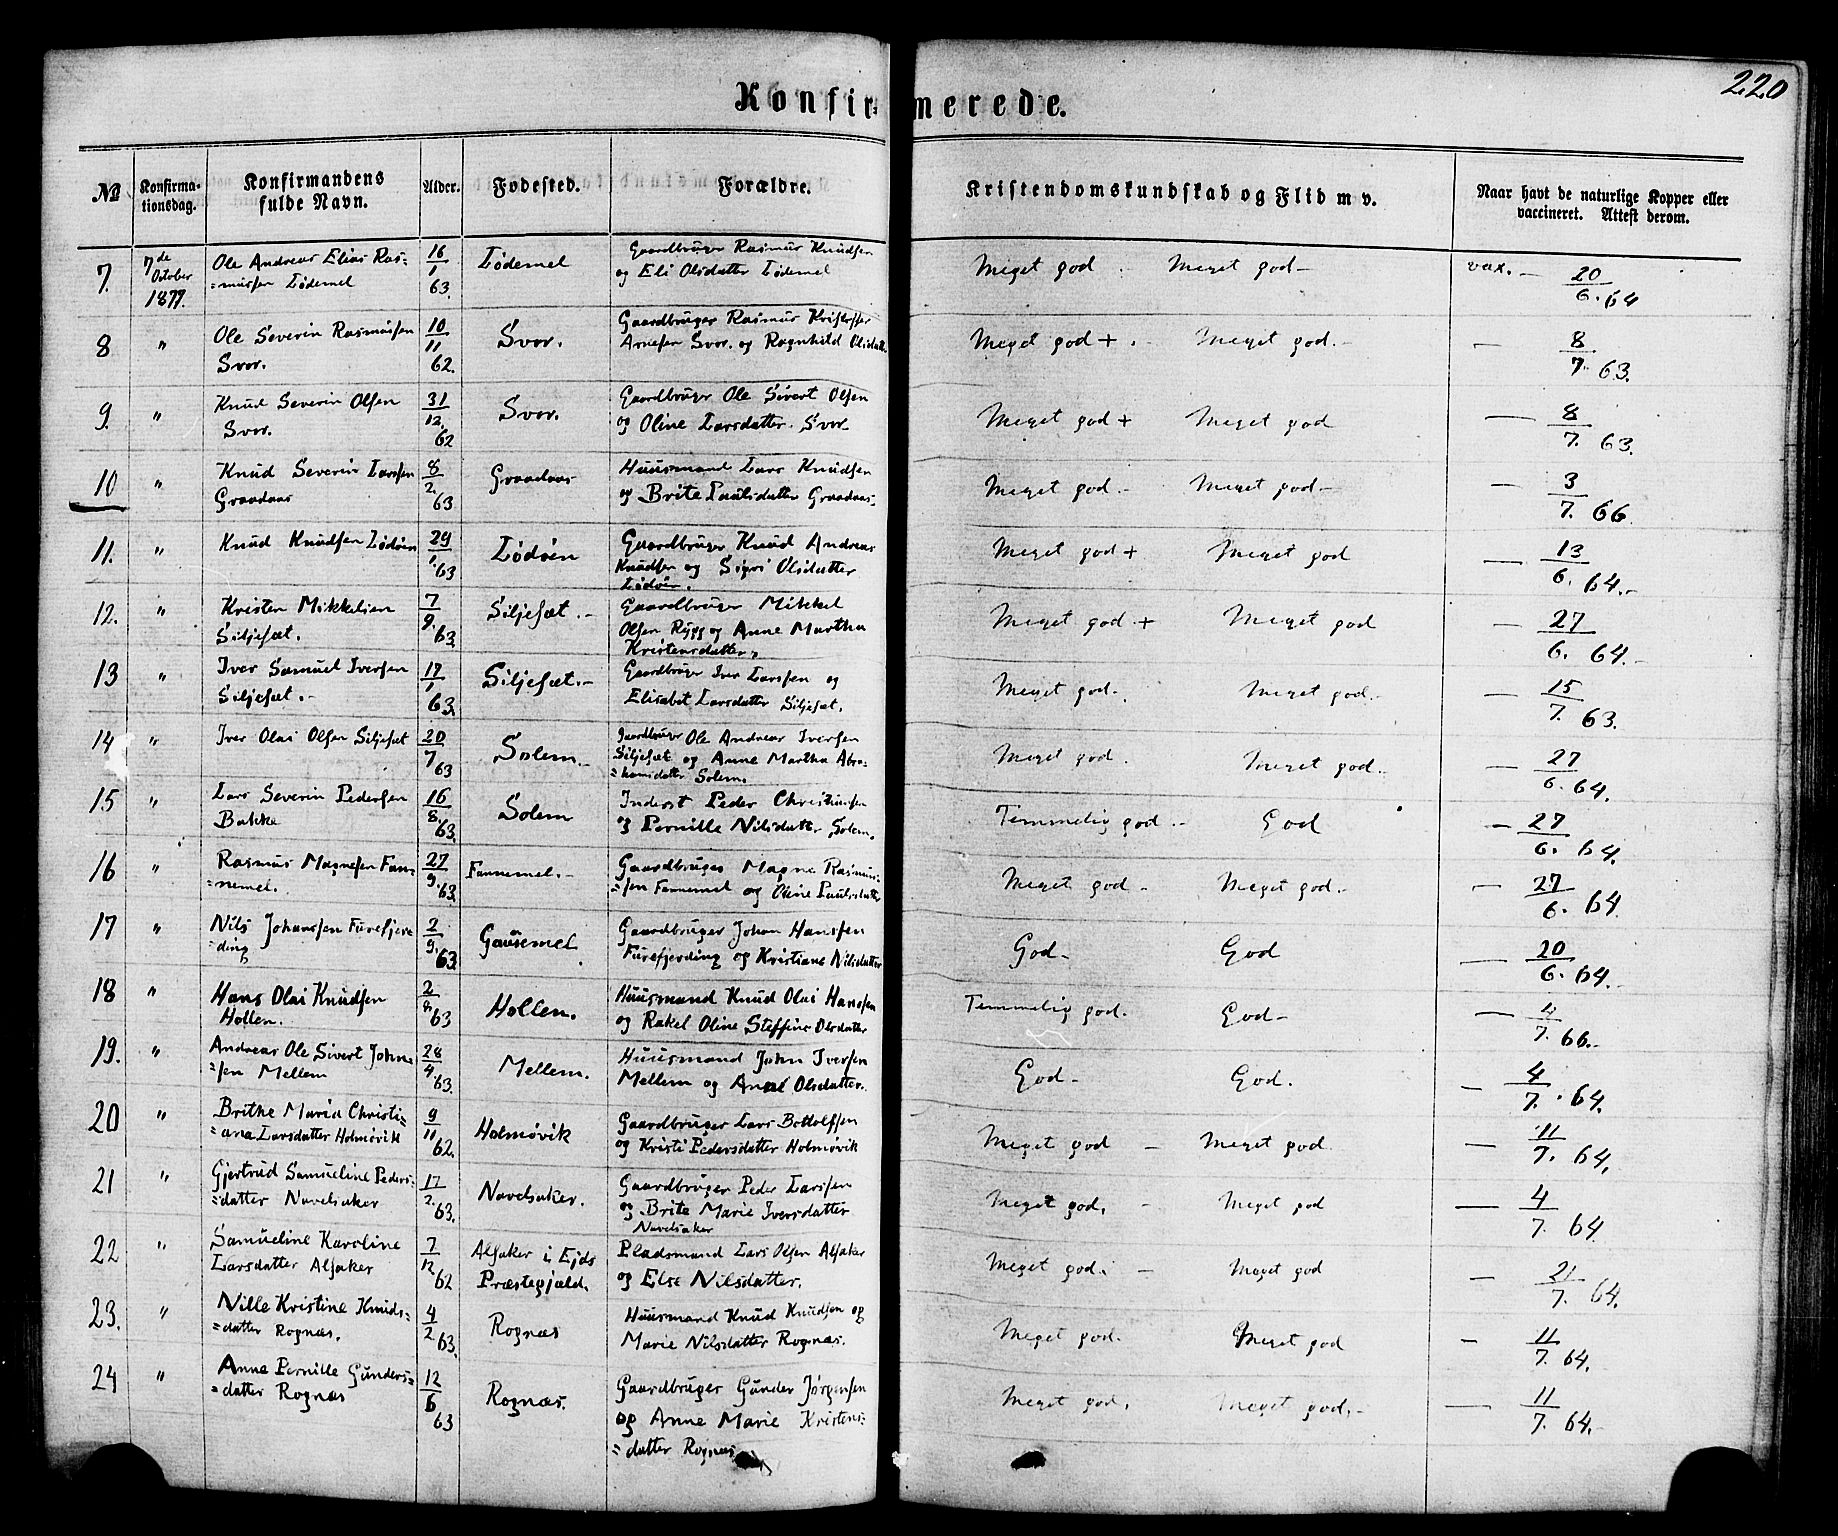 220
Konfirmerede.
№
Konfirma-
tionsdag.
Konfirmandens
fulde Navn.
Alder.
Fødested.
Forældre.
Kristendomskundskab og Flid m v.
Naar havt de naturlige Kopper eller
vaccineret. Attest derom.
7. 7de October 1877. Ole Andreas Elias Ras= 16/1 63. Lødemel Gaardbruger Rasmus Knudsen Meget god. Meget god— vax. — 20/6. 64
=mussen Lødemel og Eli Olsdatter Lødemel
8 " Ole Severin Rasmussen 10/11 62. Svor. Gaardbruger Rasmus Kristoffer Meget god + . Meget god.— — 8/7. 63.
Svor. Arnesen Svor. og Ragnhild Olsdatt.
9. " Knud Severin Olsen 31/12. 62 Svor. Gaardbruger Ole Sivert Olsen Meget god + Meget god — 8/7. 63.
Svor. og Oline Larsdatter. Svor—
10 " Knud Severin Larssen 8/2. 63 Graadaas Huusmand Lars Knudsen Meget god.— Meget god— — 3/7. 66.
Graadaas og Brite Paulsdatter Graadaas—
11. " Knud Knudsen Lødøen 29/1. 63 Lødøen Gaardbruger Knud Andreas Meget god + Meget god — 13/6. 64.—
Knudsen og Sigri Olsdatter
Lødøen.
12. " Kristen Mikkelsen 7/9. 63. Siljesæt.— Gaardbruger Mikkel Meget god.+ Meget god — 27/6. 64.—
Siljesæt. Olsen Rygg og Anne Martha
Kristensdatter,
13 " Iver Samuel Iversen 17/1 63. Siljesæt.— Gaardbruger Iver Larssen og Meget god. Meget god. — 15/7. 63.
Siljesæt.— Elisabet Larsdatter Siljesæt.
14 " Iver Olai Olsen Siljesæt 20/7 63 Solem.— Gaardbruger Ole Andreas Iversen Meget god. Meget god. — 27/6. 64.
Siljesæt og Anne Martha Abra=
=hamsdatter Solem.
15 " Lars Severin Pedersen 16/8. 63. Solem Inderst Peder Christiansen Temmelig god.— God — 27/6. 64.
Bakke og Pernille Nilsdatter Solem.
16 " Rasmus Magnesen Fan= 27/9. 63. Fannemel.— Gaardbruger Magne Rasmus= Meget god— Meget god.— — 27/6. 64.
=nemel. =sen Fannemel og Oline Paulsdatter
17 " Nils Johanssen Furefjær= 2/9. 63. Gausemel Gaardbruger Johan Hanssen God— God — 20/6. 64.
=ding Furefjerding og Kristiane Nilsdatter
18 " Hans Olai Knudsen 2/8. 63 Hollen. Huusmand Knud Olai Hanssen Temmelig god. God— — 4/7. 66.—
Hollen. og Rakel Oline Steffine Olsdatter
19. " Andreas Ole Sivert Johns= 28/4. 63. Mellem. Huusmand John Iversen God— God. — 4/7. 64.
=sen Mellem Mellem og Anne Olsdatter.
20 " Brithe Maria Christi= 9/11 62. Holmøvik Gaardbruger Lars Bottolfsen Meget god — Meget god. — 11/7. 64.
=ana Larsdatter Holmøvik og Kristi Pedersdatter Holmøvik
21 " Gjertrud Samueline Peders= 17/2. 63. Navelsaker. Gaardbruger Peder Larssen Meget god. — Meget god — 4/7. 64.
=datter Navelsaker og Brite Marie Iversdatter
Navelsaker
22 " Samueline Karoline 7/12 62 Alsaker i Ejds Pladsmand Lars Olsen Alsaker Meget god. — Meget god — 21/7. 64.
Larsdatter Alsaker Præstegjæld. og Else Nilsdatter.
23. " Nille Kristine Knuds= 4/2. 63. Rognæs Huusmand Knud Knudsen og Meget god. Meget god — 11/7. 64.
=datter Rognæs. Marie Nilsdatter Rognæs.
24 " Anne Pernille Gunders= 12/6 63 Rognæs. Gaardbruger Gunder Jørgensen Meget god. Meget god.— — 11/7. 64.—
=datter Rognæs og Anne Marie Kristens=
=datter Rognæs